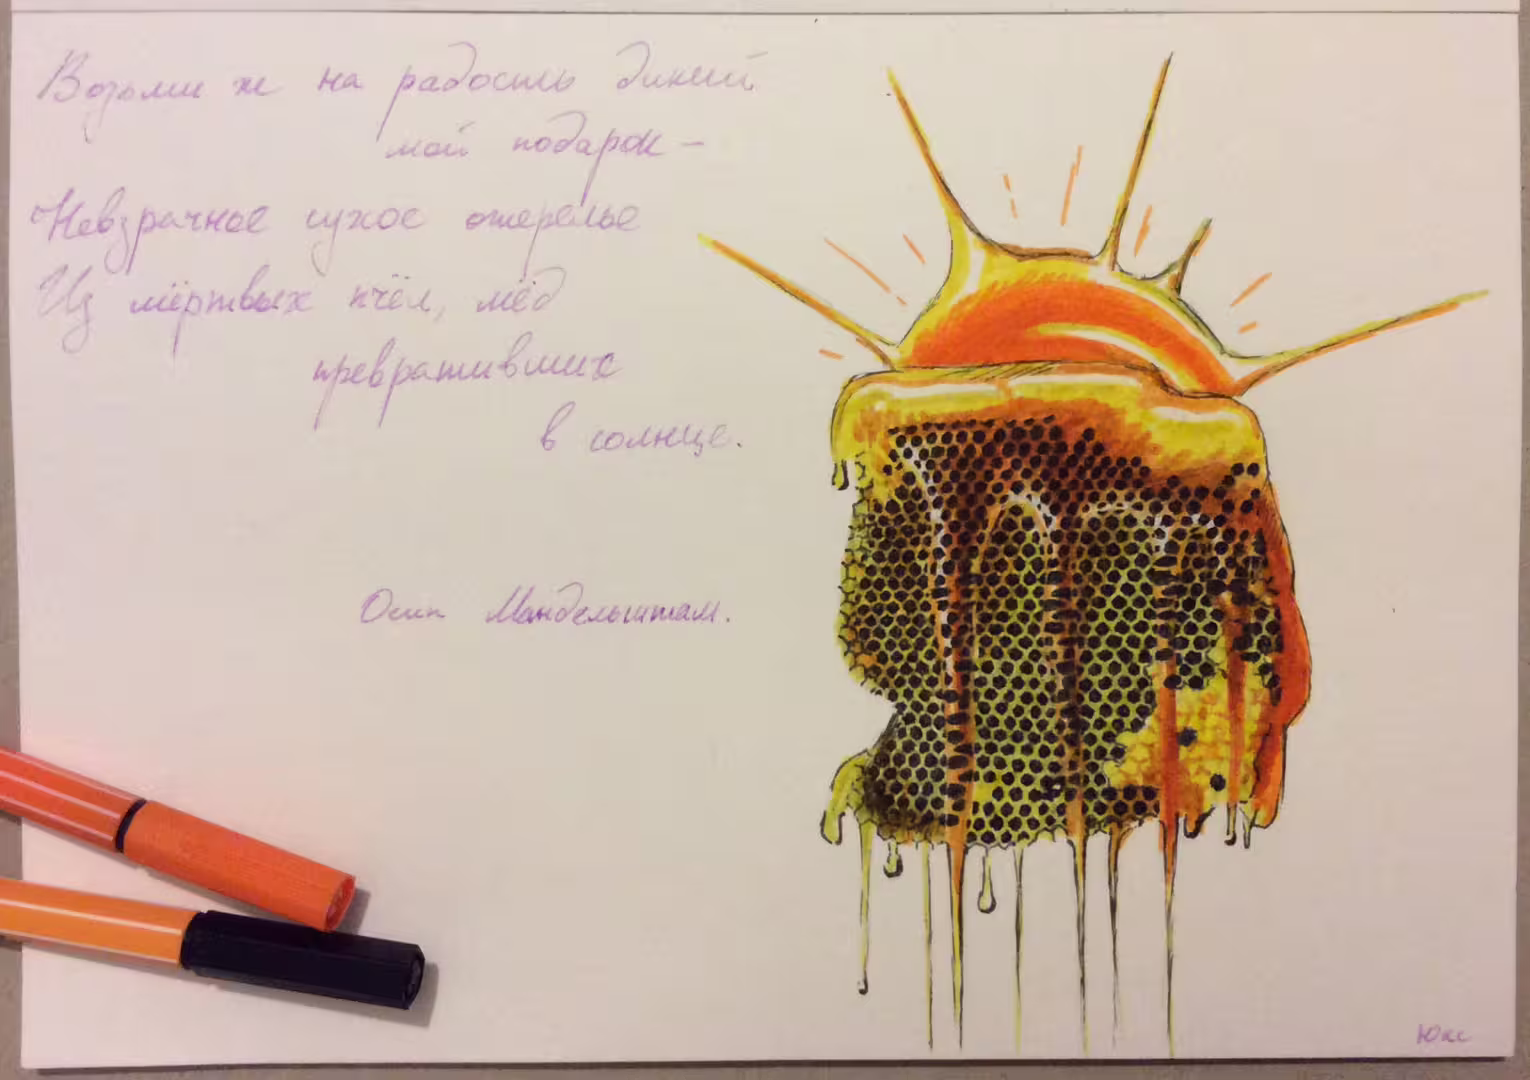 Возьми ж на радость дикий
мой подарок –
Невзрачное сухое ожерелье
Из мёртвых пчёл, мёд
превративших
в солнце.
Осип Мандельштам.